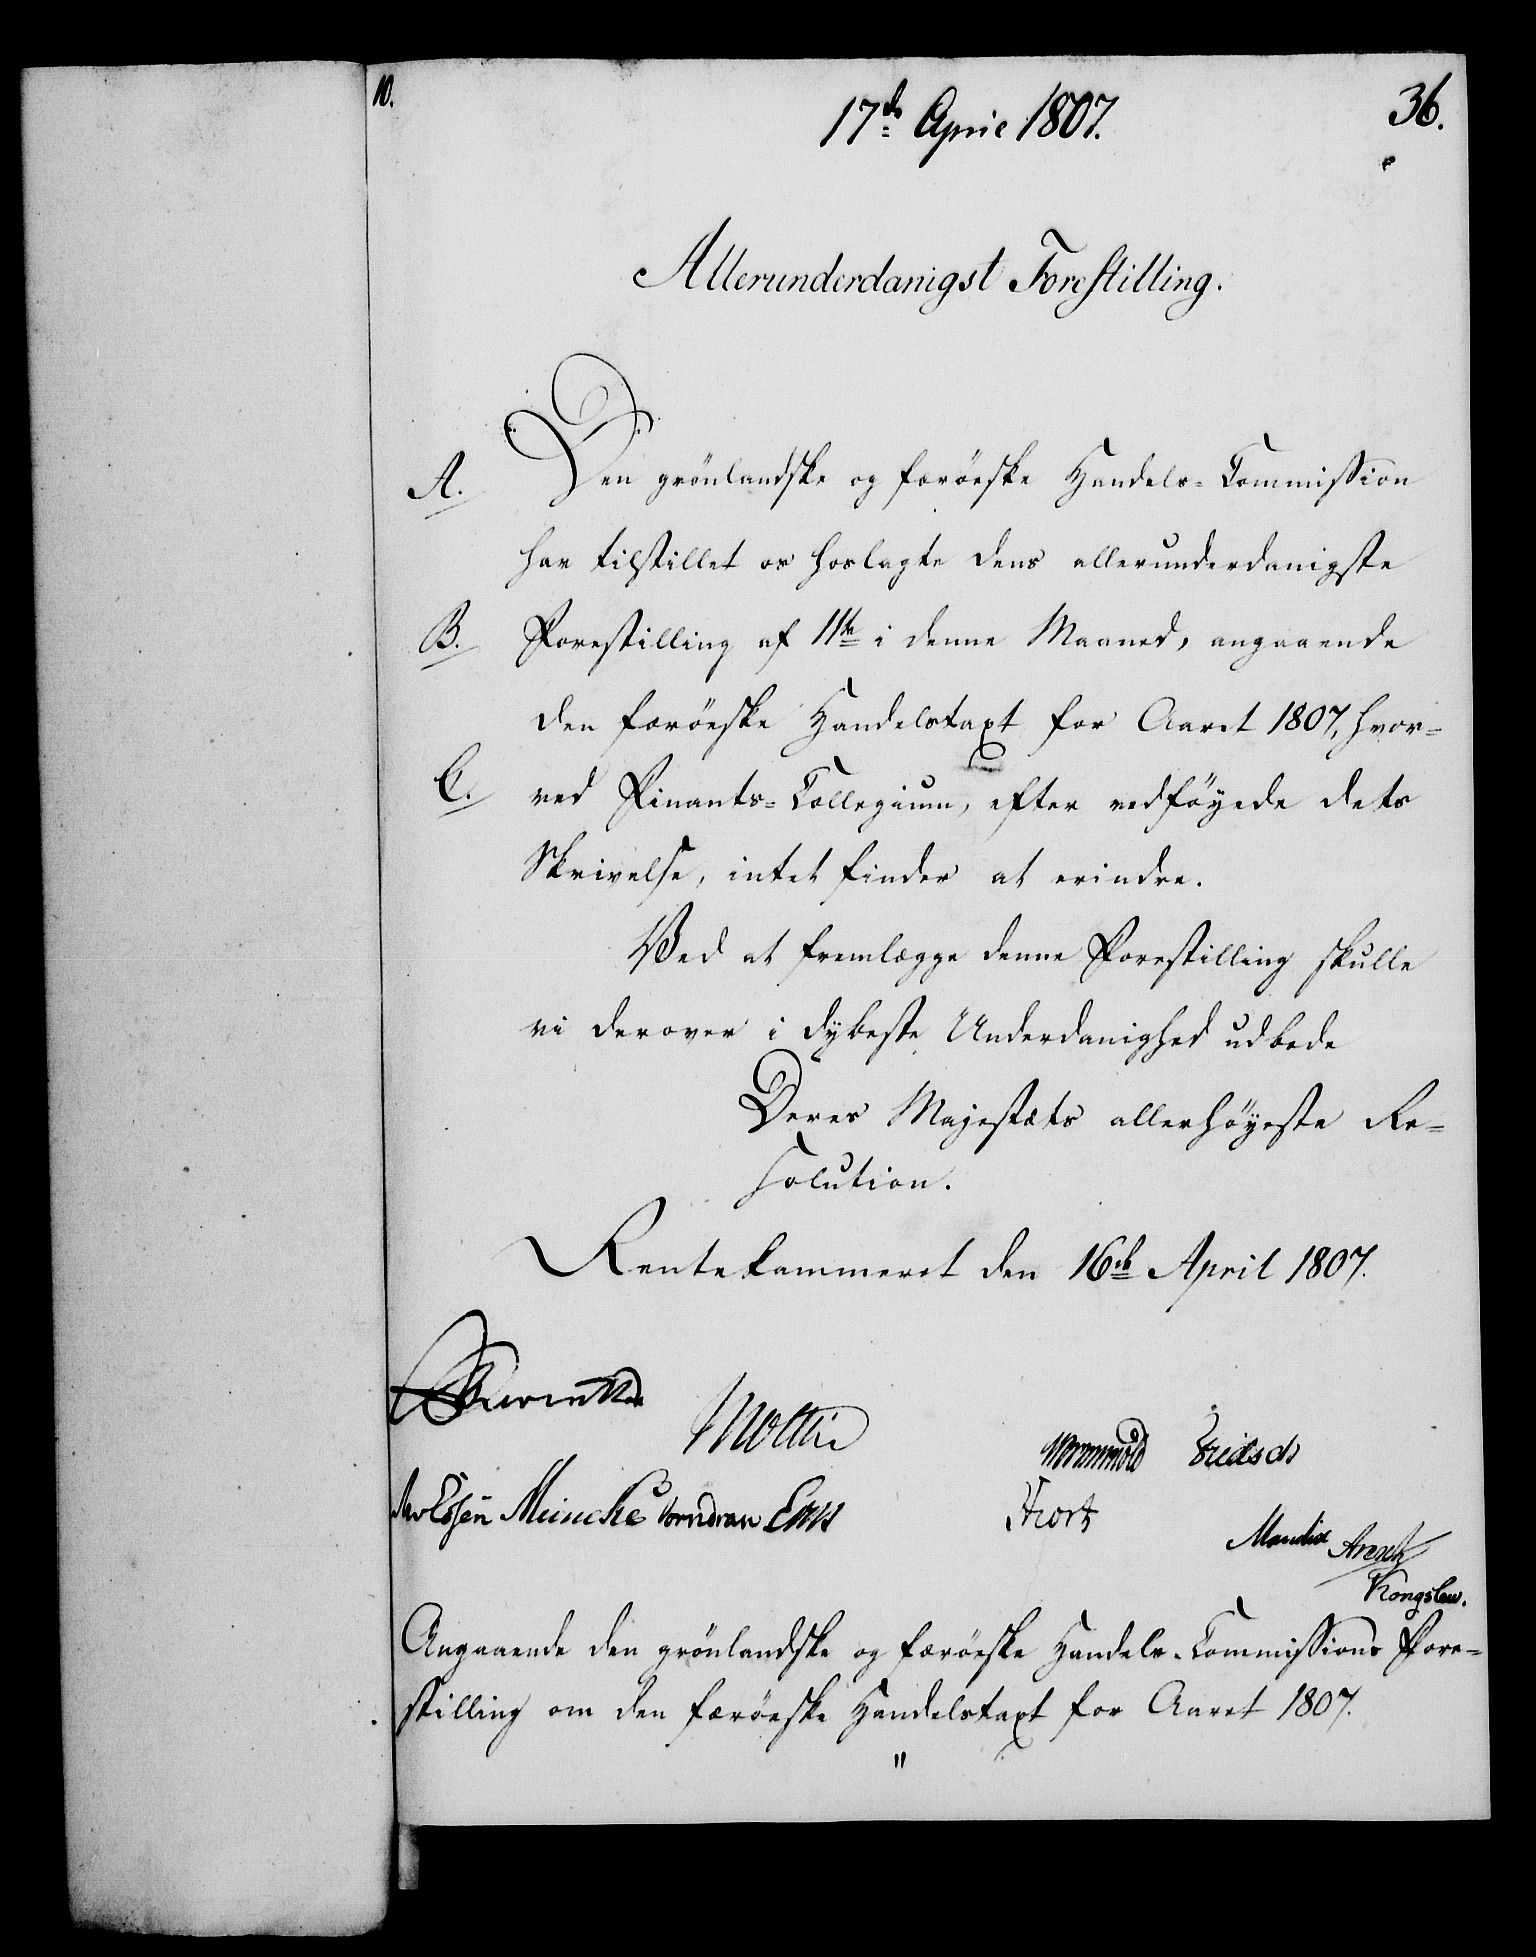 10.
17de April 1807.
36.
Allerunderdanigst Forestilling.
A. Den grönlandske og færöeske Handels-Commission
har tilstillet os hoslagte dens allerunderdanigste
B. Forestilling af 11te i denne Maaned, angaaende
den færöeske Handelstaxt for Aaret 1807, hvor-
C. ved Finants-Collegium, efter vedföyede dets
Skrivelse, intet finder at erindre.
Ved at fremlægge denne Forestilling skulle
vi derover i dybeste Underdanighed udbede
Deres Majestæts allerhöyeste Re-
solution.
Rentekammeret den 16de April 1807.
Reventlow
Moltke
Wormskiold
Meincke Vorndran
Mandix
Kongslew.
Angaaende den grönlandske og færöeske Handels-Commissions Fore-
stilling om den færöeske Handelstaxt for Aaret 1807.
"